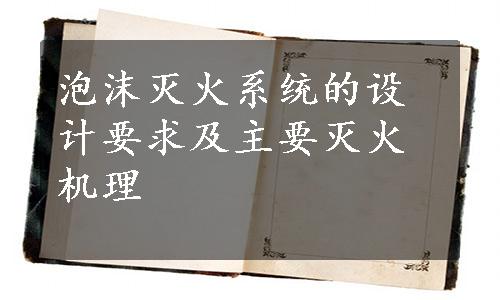 泡沫灭火系统的设
计要求及主要灭火
机理